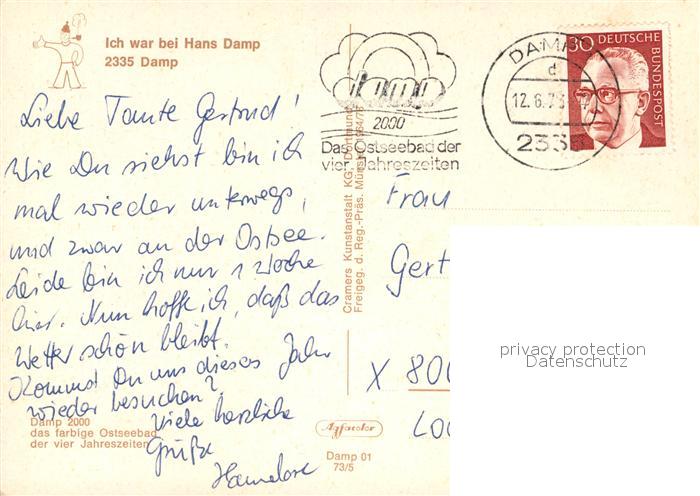 Ich war bei Hans Damp
2335 Damp
Liebe Tante Gertrud!
Wie Du siehst bin ich
mal wieder unterwegs,
und zwar an der Ostsee.
Leide bin ich nur 1 Woche
hier. Nun hoffe ich, daß das
Wetter schön bleibt.
Kommst Du uns dieses Jahr
wieder besuchen?
Viele herzliche
Grüße
Hannelore
Damp 2000
das farbige Ostseebad
der vier Jahreszeiten
Cramers Kunstanstalt KG, Dortmund
Freigeg. d. Reg.-Präs. Münster
damp
2000
Das Ostseebad der
vier Jahreszeiten
DAMP
d
12.6.7
2335
30 DEUTSCHE
BUNDESPOST
Frau
Gert
X 80
Agfacolor
Damp 01
73/5
privacy protection
Datenschutz